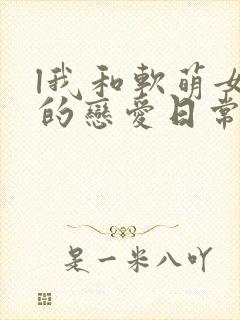 我和軟萌女
的戀愛日常
是一米八吖